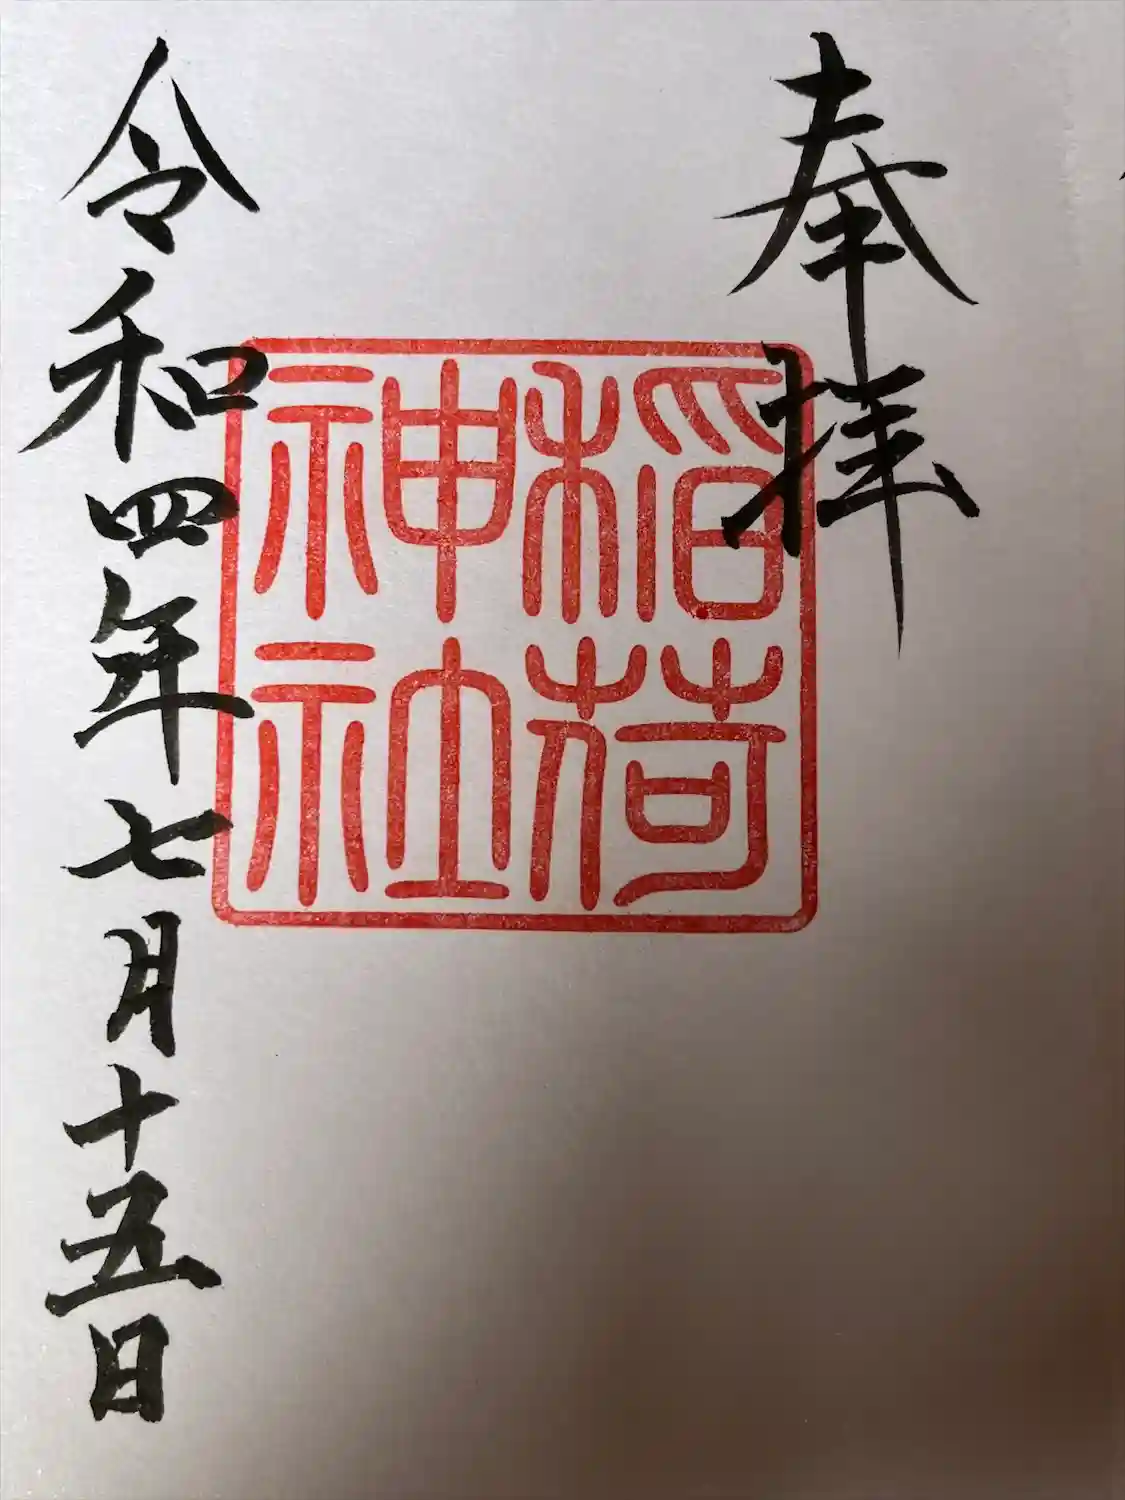 奉拝
稲荷
神社
令和四年七月十五日